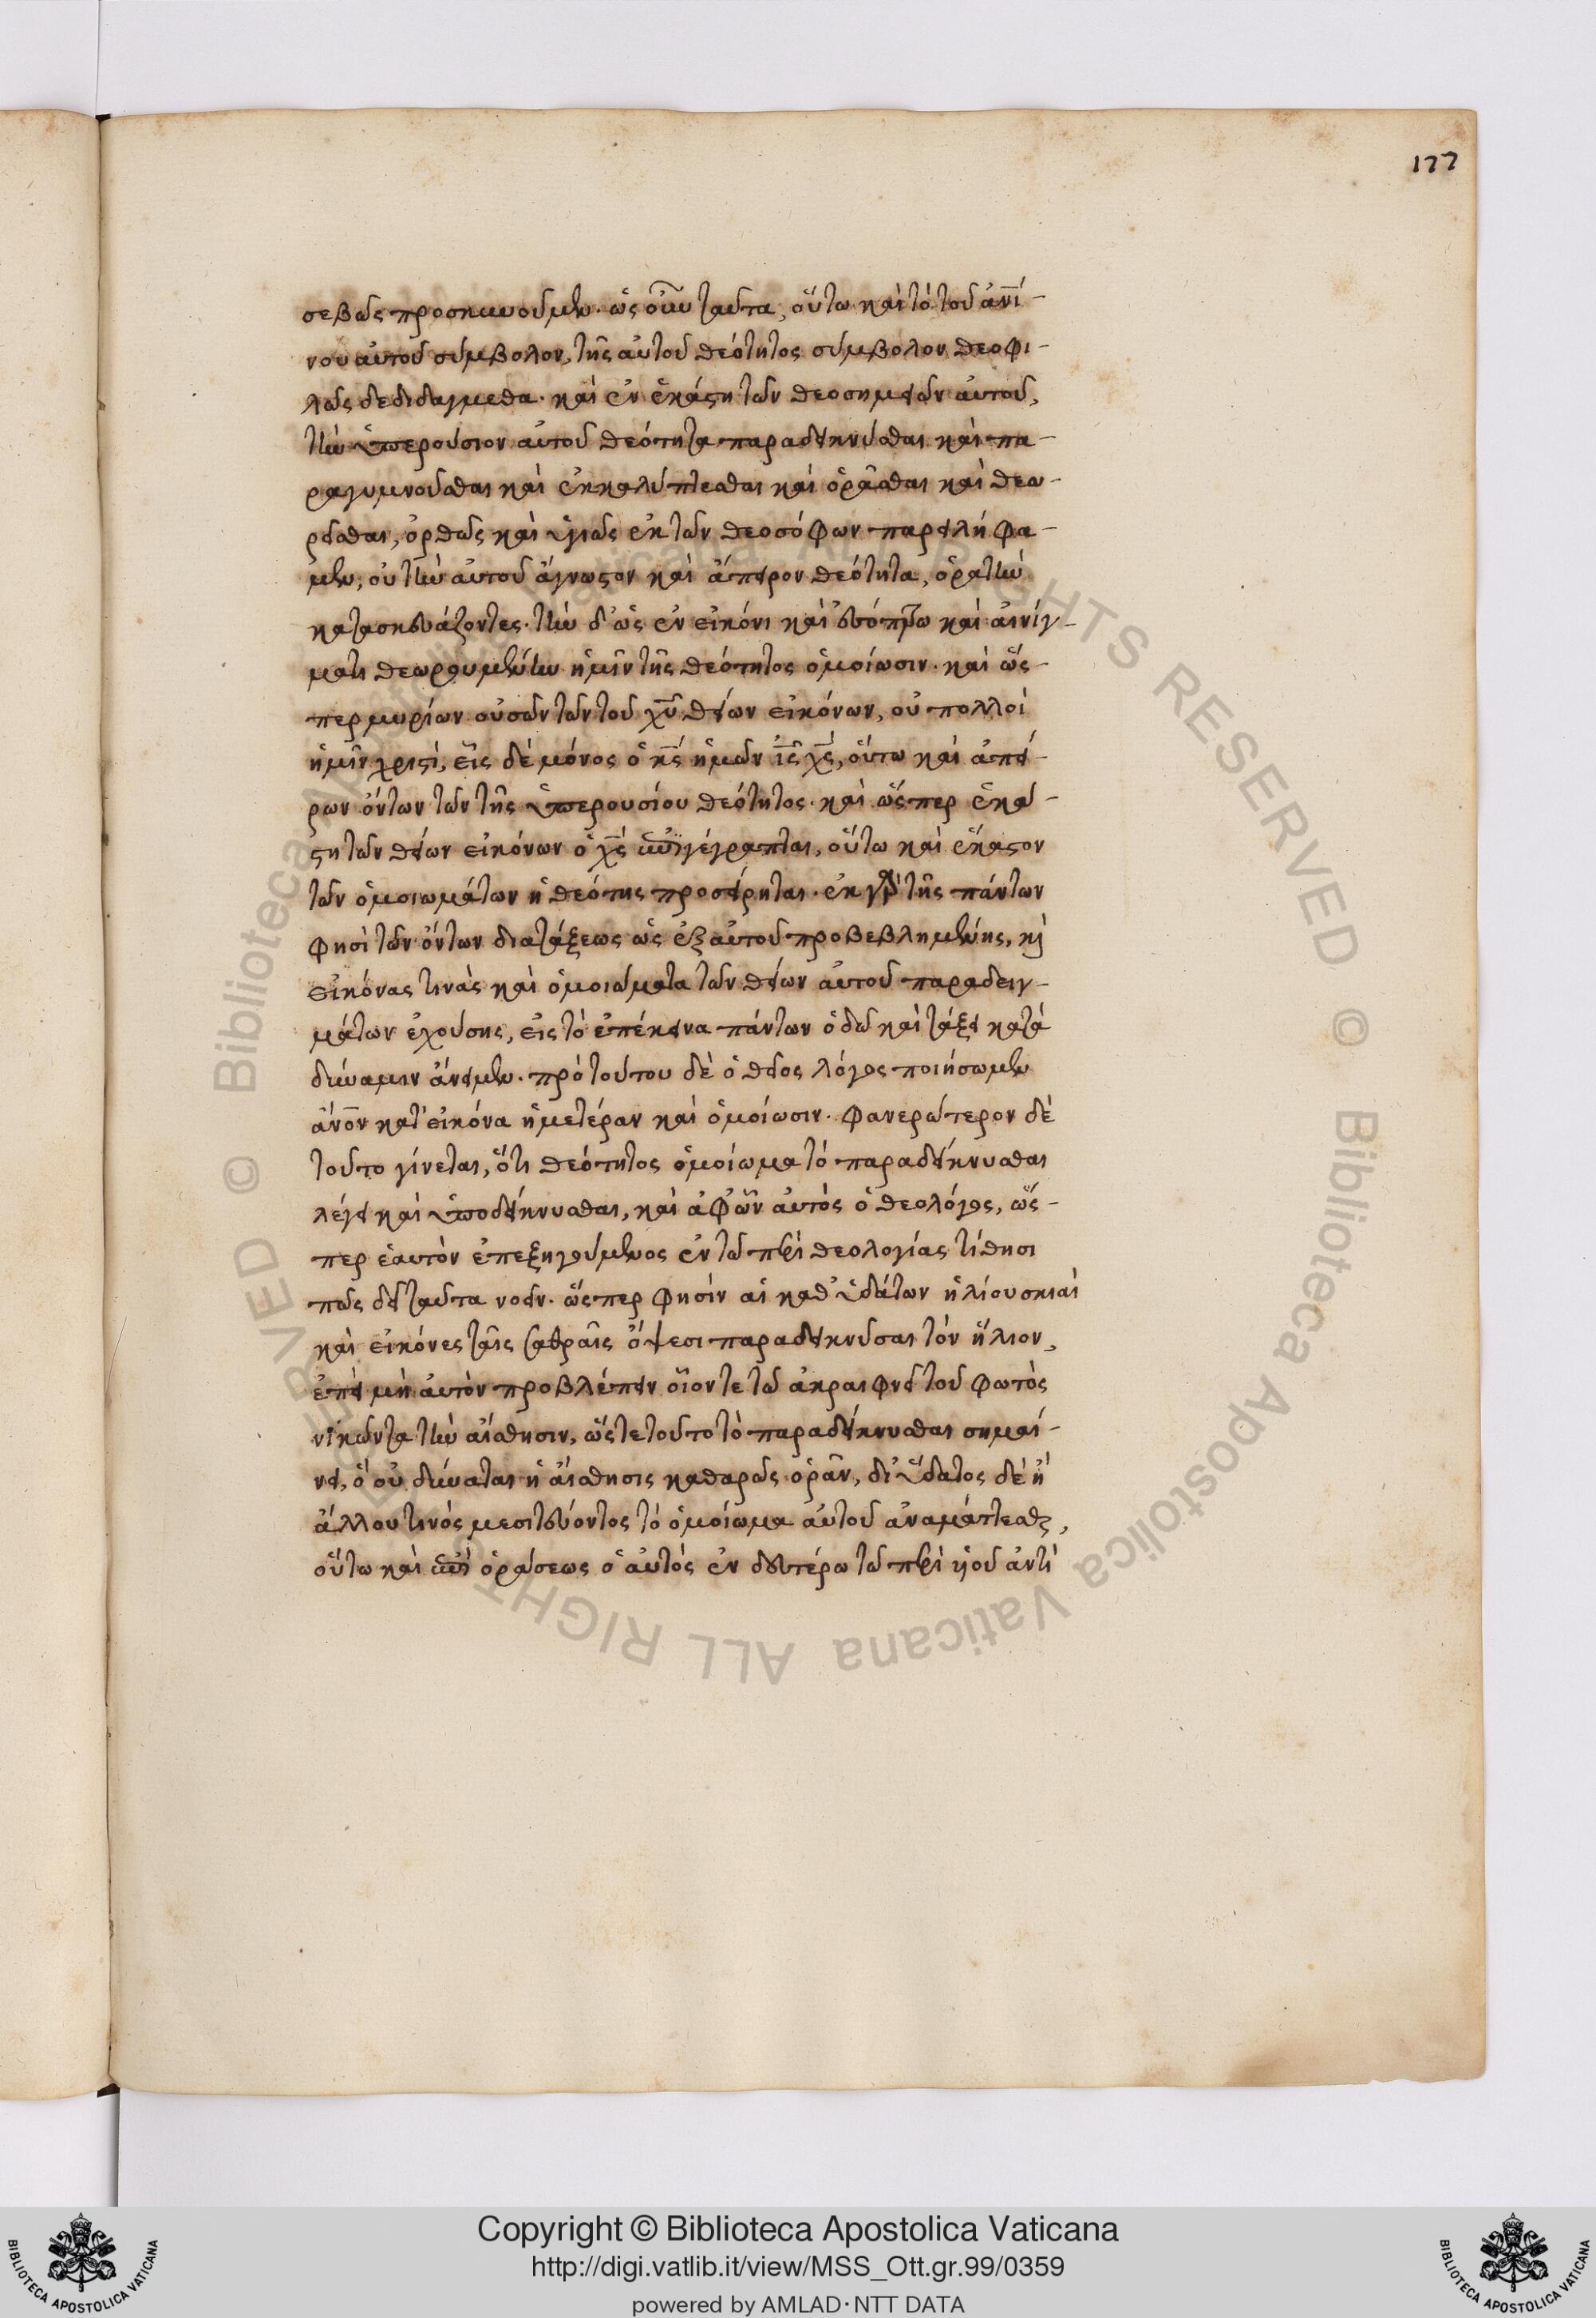 177
σεβῶς προσκυνοῦμεν. ὡς οὖν ταῦτα, οὕτω καὶ τὸ τοῦ ἀνί-
νου αὐτοῦ σύμβολον, τῆς αὐτοῦ θεότητος σύμβολον θεοφι-
λῶς δεδιδάγμεθα. καὶ ἐν ἑκάστη τῶν θεοσημειῶν αὐτοῦ,
τὴν ὑπερούσιον αὐτοῦ θεότητα παραδείκνυσθαι καὶ πα-
ραγυμνοῦσθαι καὶ ἐκκαλύπτεσθαι καὶ ὁρᾶσθαι καὶ θεω-
ρεῖσθαι, ὀρθῶς καὶ ὑγιῶς ἐκ τῶν θεοσόφων παρειλήφα-
μεν, οὐ τὴν αὐτοῦ ἄγνωστον καὶ ἄπειρον θεότητα, ὁρατὴν
κατασκευάζοντες. τὴν δ' ὡς ἐν εἰκόνι καὶ ἐσόπτρω καὶ αἰνίγ-
ματι θεωρουμένην ἡμῖν τῆς θεότητος ὁμοίωσιν. καὶ ὥς-
περ μυρίων οὐσῶν τῶν τοῦ χυ θείων εἰκόνων, οὐ πολλοὶ
ἡμῖν χριστοὶ, εἷς δὲ μόνος ὁ κς ἡμῶν ις χς, οὕτω καὶ ἀπεί-
ρων ὄντων τῶν τῆς ὑπερουσίου θεότητος. καὶ ὥςπερ ἑκά-
στη τῶν θείων εἰκόνων ὁ χς ἐπιγέγραπται, οὕτω καὶ ἕκαστον
τῶν ὁμοιωμάτων ἡ θεότης προσείρηται. ἐκ γὰρ τῆς πάντων
φησὶ τῶν ὄντων διατάξεως ὡς ἐξ αὐτοῦ προβεβλημένης, κὶ
εἰκόνας τινὰς καὶ ὁμοιώματα τῶν θείων αὐτοῦ παραδειγ-
μάτων ἐχούσης, εἰς τὸ ἐπέκεινα πάντων ὁδῶ καὶ τάξει κατὰ
δύναμιν ἄνειμεν. πρὸ τούτου δὲ ὁ θεῖος λόγος ποιήσωμεν
ἄνον κατ' εἰκόνα ἡμετέραν καὶ ὁμοίωσιν. φανερώτερον δὲ
τοῦτο γίνεται, ὅτι θεότητος ὁμοίωμα τὸ παραδείκνυσθαι
λέγει καὶ ὑποδείκνυσθαι, καὶ ἀφ' ὧν αὐτὸς ὁ θεολόγος, ὥς-
περ ἑαυτὸν ἐπεξηγούμενος ἐν τῶ περὶ θεολογίας τίθησι
πῶς δεῖ ταῦτα νοεῖν. ὥςπερ φησὶν αἱ καθ' ὑδάτων ἡλίου σκιαὶ
καὶ εἰκόνες ταῖς σαθραῖς ὄψεσι παραδεικνῦσαι τὸν ἥλιον,
ἐπεὶ μὴ αὐτὸν προβλέπειν οἷον τε τῶ ἀκραιφνεῖ τοῦ φωτὸς
νικῶντα τὴν αἴσθησιν, ὥςτε τοῦτο τὸ παραδείκνυσθαι σημαί-
νει, ὃ οὐ δύναται ἡ αἴσθησις καθαρῶς ὁρᾶν, δι' ὕδατος δὲ ἢ
ἄλλου τινὸς μεσιτεύοντος τὸ ὁμοίωμα αὐτοῦ ἀναμάττεσθαι,
οὕτω καὶ ἐπὶ ὁράσεως ὁ αὐτὸς ἐν δευτέρω τῶ περὶ υἱοῦ ἀντὶ
Copyright © Biblioteca Apostolica Vaticana
http://digi.vatlib.it/view/MSS_Ott.gr.99/0359
powered by AMLAD·NTT DATA